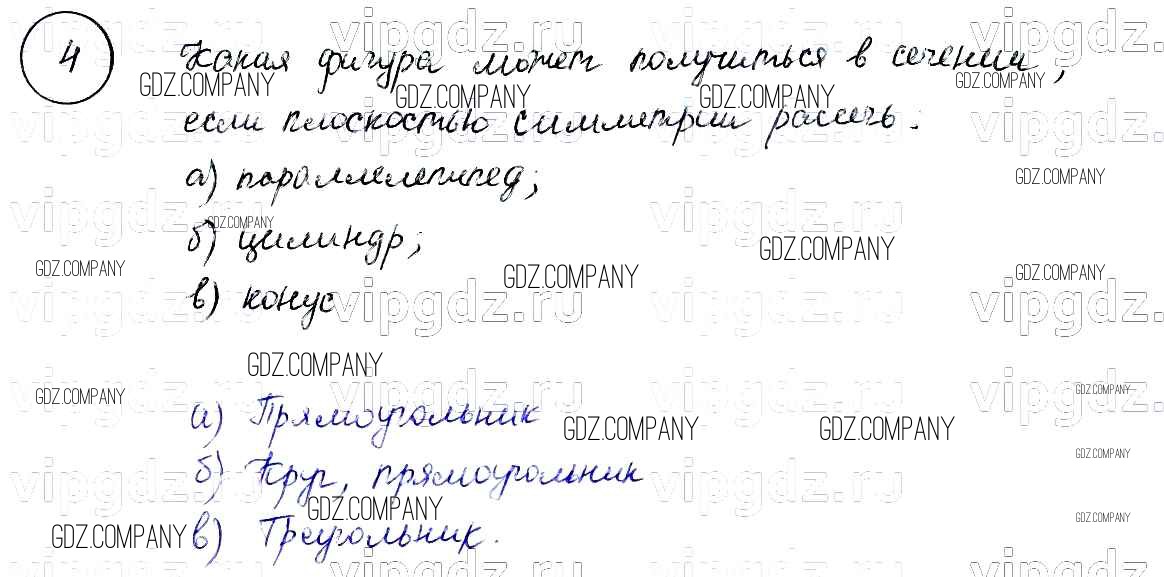 4 Какая фигура может получиться в сечении,
если плоскостью симметрии рассечь:
а) параллелепипед;
б) цилиндр;
в) конус
а) Прямоугольник
б) Круг, прямоугольник
в) Треугольник.